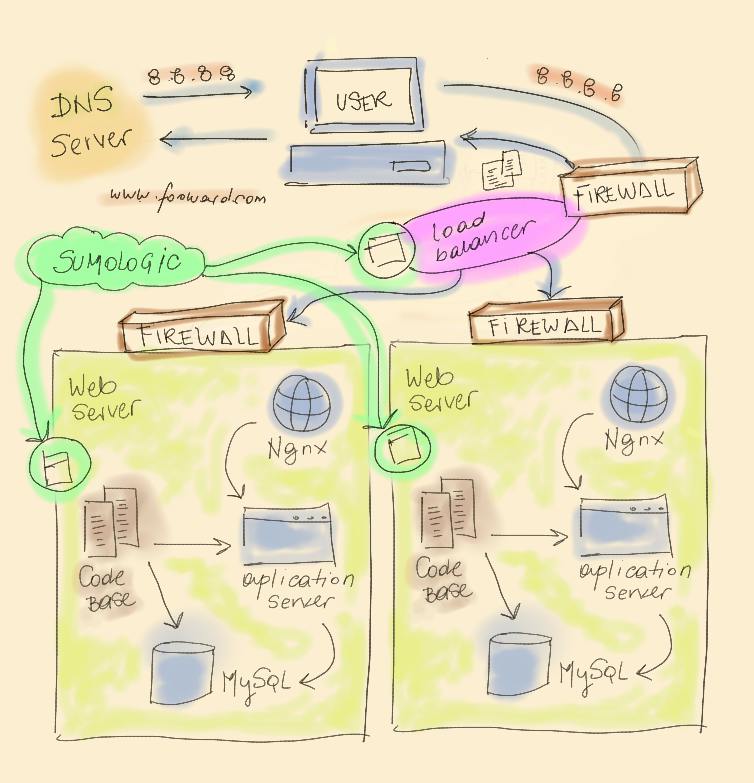 8.8.8.8
8.8.8.8
DNS
Server
USER
www.fooward.com
FIREWALL
load
balancer
SUMOLOGIC
FIREWALL
FIREWALL
Web
Server
Ngnx
Code
BASE
aplication
server
MySQL
Web
Server
Ngnx
Code
BASE
aplication
server
MySQL